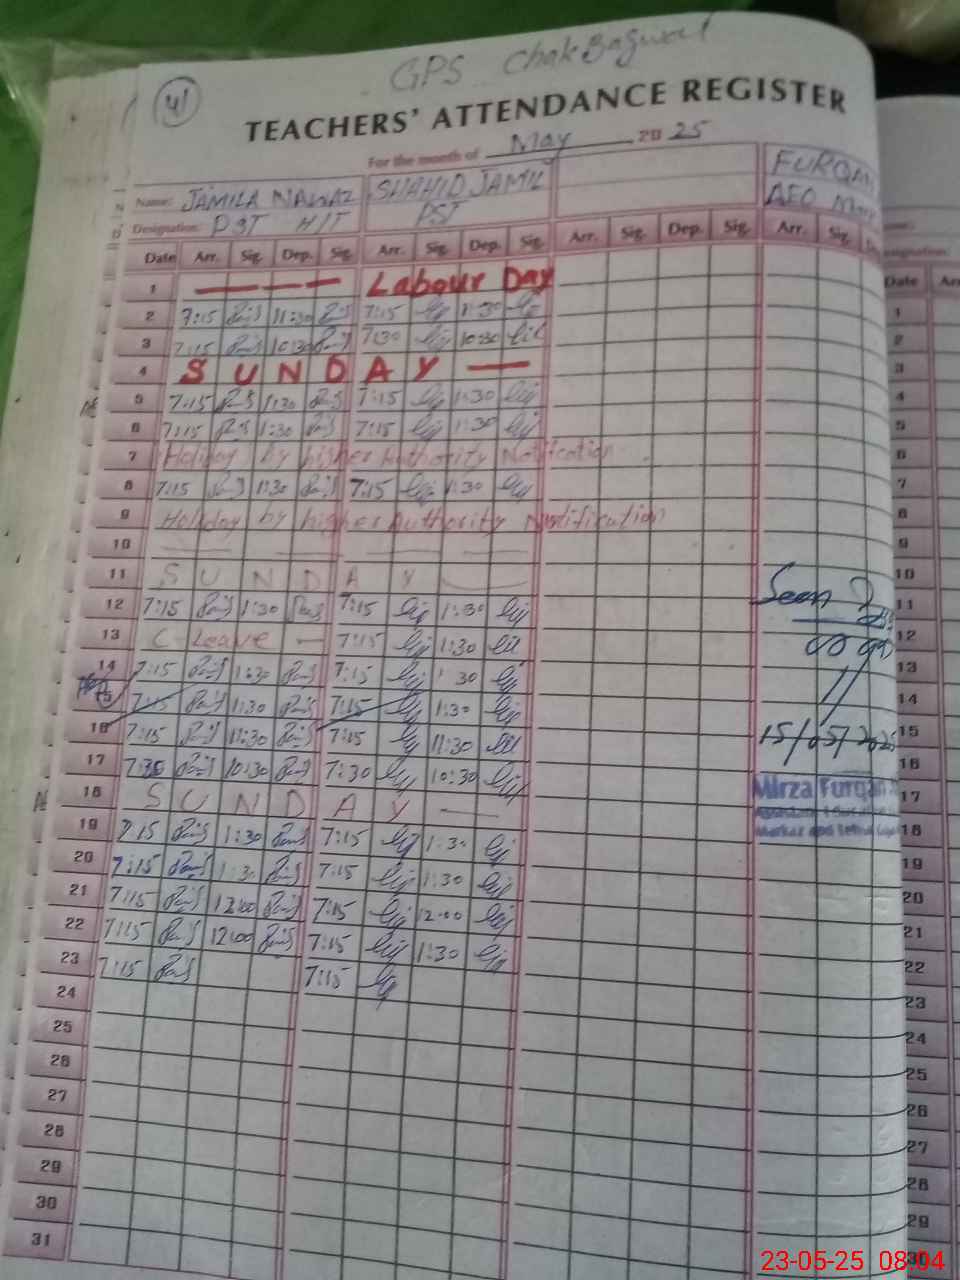 41
GPS Chak Bagwal
TEACHERS' ATTENDANCE REGISTER
For the month of May 2025
Name: JAMILA NAWAZ SHAHID JAMIL FURQAN
Designation: PST H/T PST AEO
Date Arr. Sig. Dep. Sig. Arr. Sig. Dep. Sig. Arr. Sig. Dep. Sig. Arr. Sig.
1 — — — — Labour Day
2 7:15 11:30 7:15 11:30
3 7:15 10:30 7:30 10:30
4 S U N D A Y —
5 7:15 1:30 7:15 1:30
6 7:15 1:30 7:15 1:30
7 Holiday by higher Authority Notification
8 7:15 1:30 7:15 1:30
9 Holiday by higher Authority Notification
10 — — — —
11 S U N D A Y —
12 7:15 1:30 7:15 1:30
13 C-Leave — 7:15 1:30
14 7:15 1:30 7:15 1:30
15 7:15 1:30 7:15 1:30
16 7:15 11:30 7:15 11:30
17 7:30 10:30 7:30 10:30
18 S U N D A Y —
19 7:15 1:30 7:15 1:30
20 7:15 1:30 7:15 1:30
21 7:15 12:00 7:15 12:00
22 7:15 12:00 7:15 1:30
23 7:15 7:15
24
25
26
27
28
29
30
31
Seen
15/05/2025
Mirza Furqan
Date Arr
1
2
3
4
5
6
7
8
9
10
11
12
13
14
15
16
17
18
19
20
21
22
23
24
25
26
27
28
29
30
23-05-25 08:04